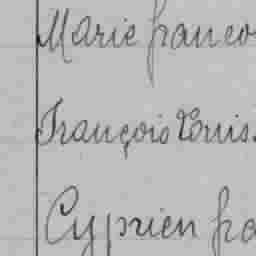 Marie franco
François Louis.
Cyprien fra